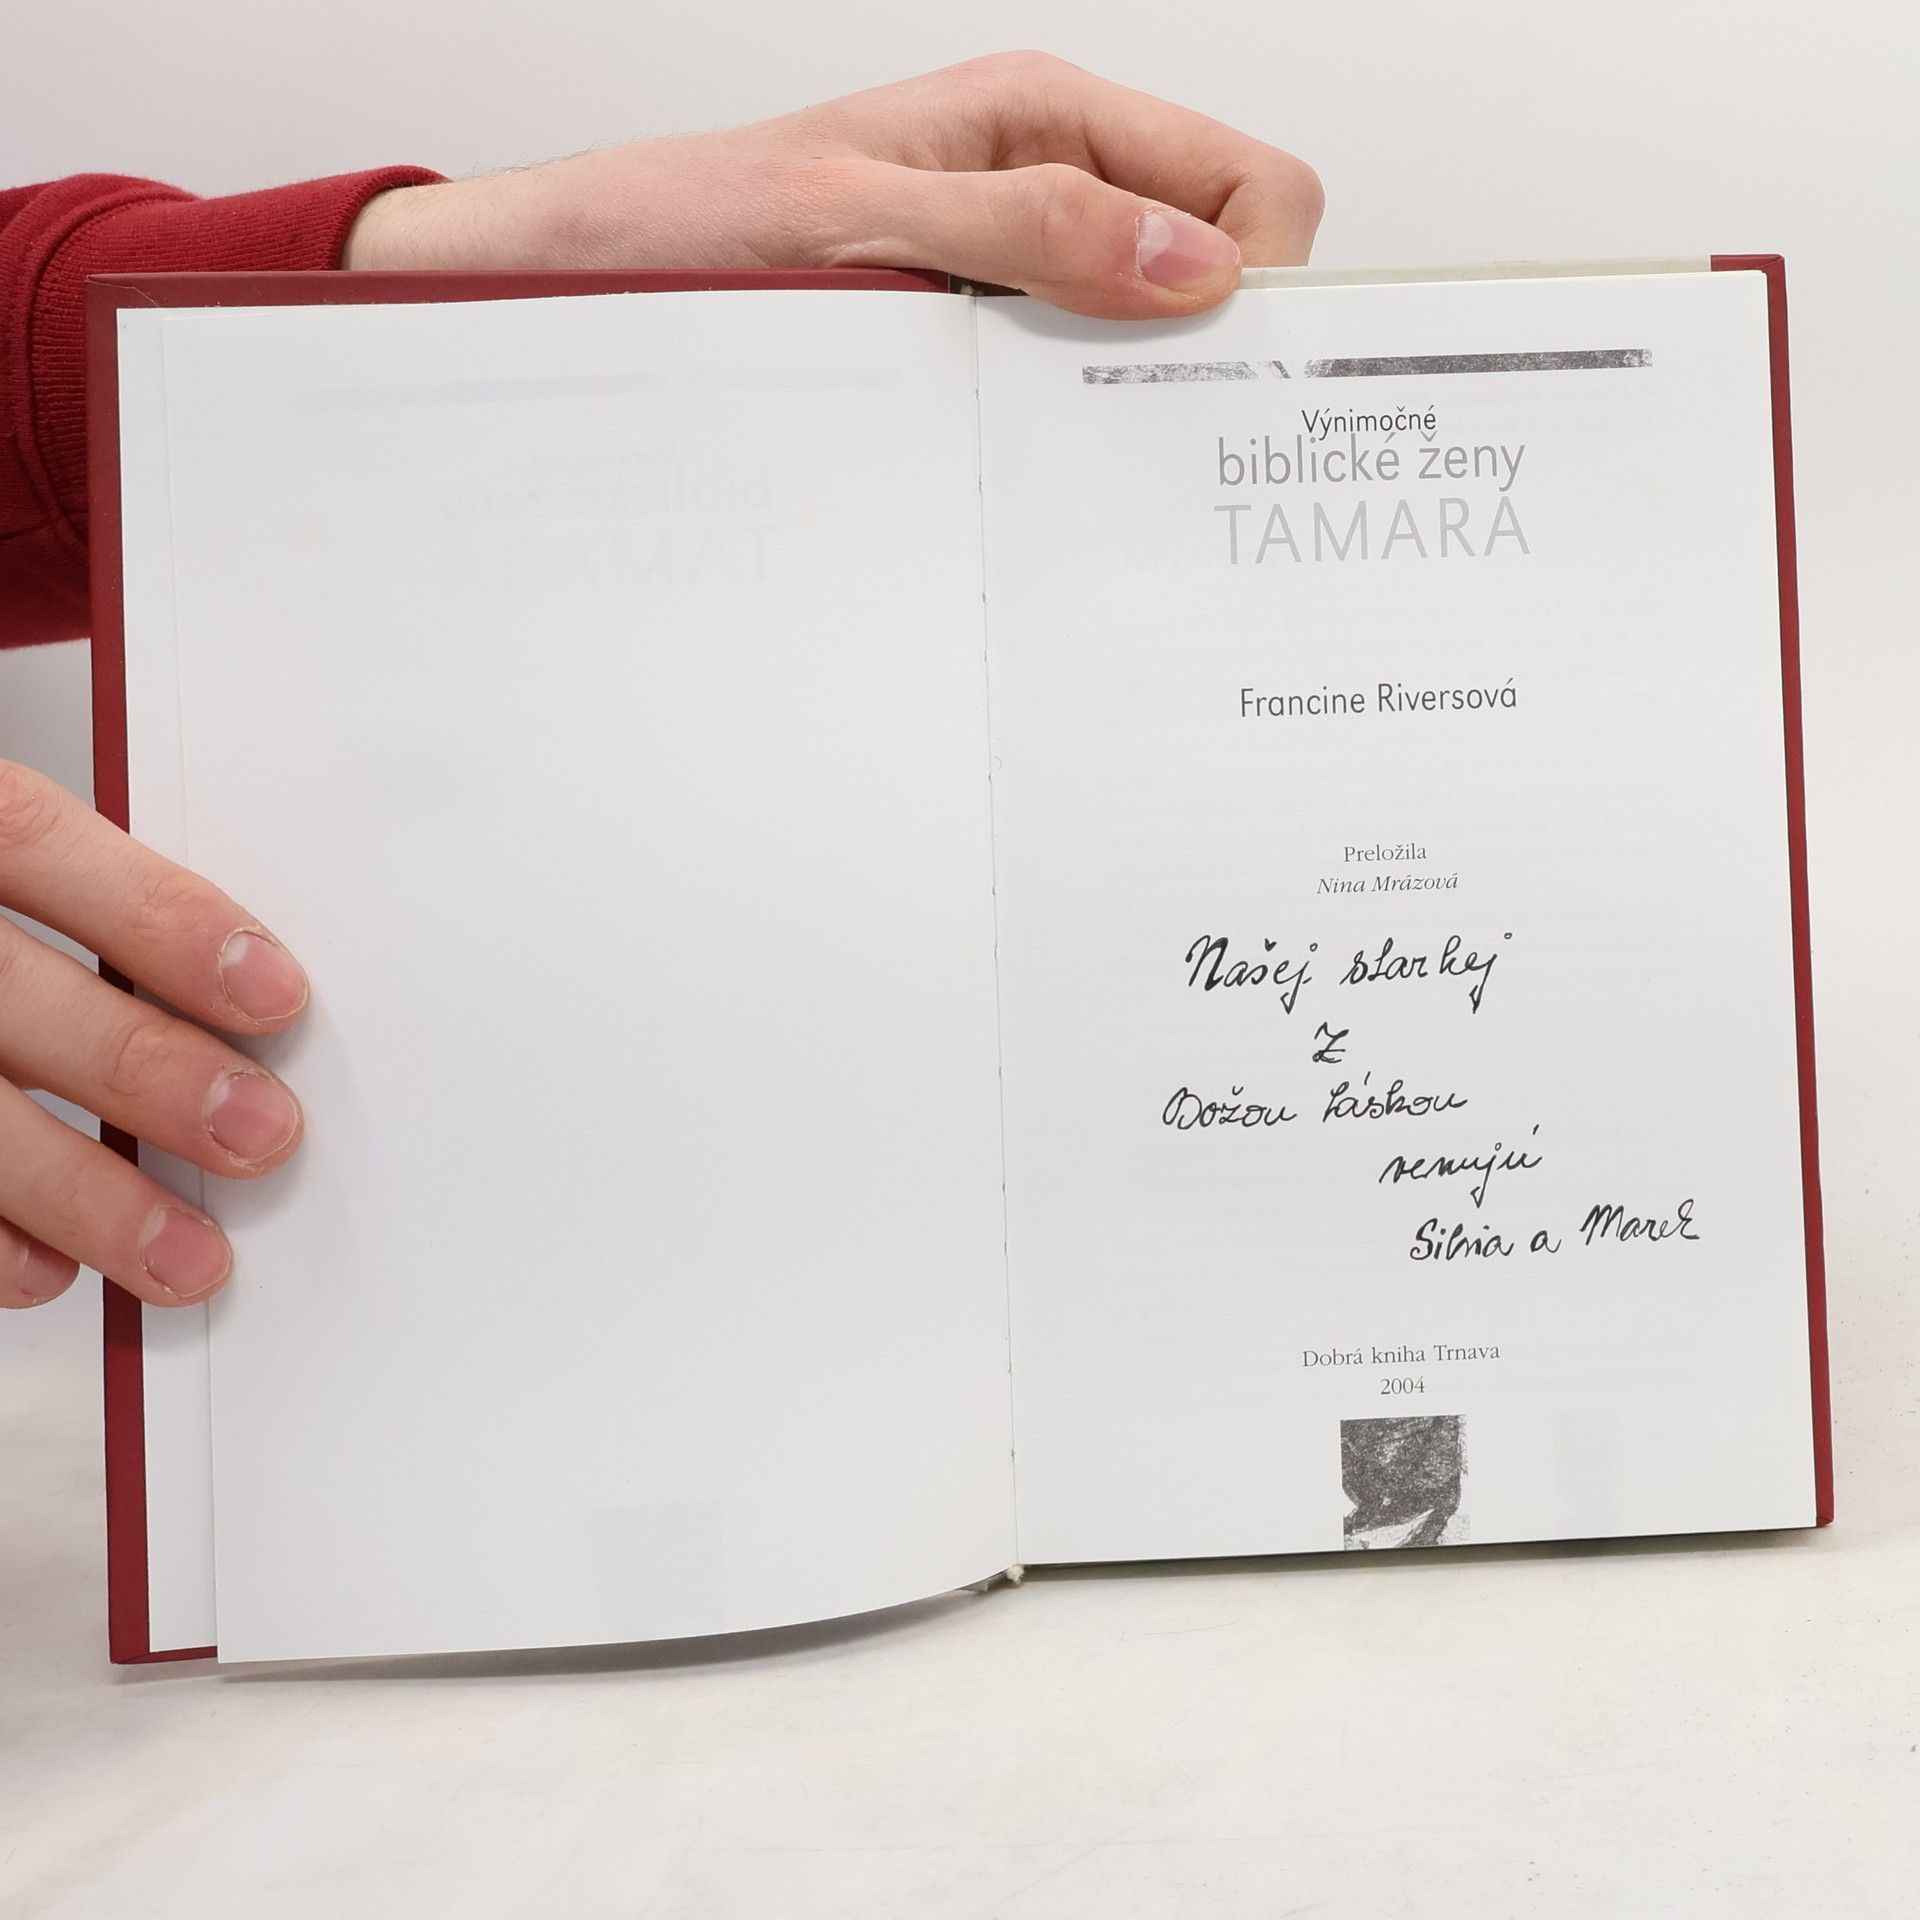 Výnimočné
biblické ženy
TAMARA
Francine Riversová
Preložila
Nina Mrázová
Našej starkej
z
Božou láskou
venujú
Silvia a Marek
Dobrá kniha Trnava
2004